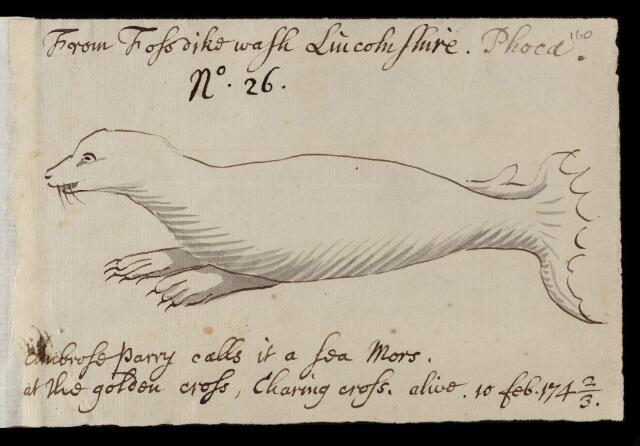 From Fossdike wash Lincolnshire. Phoca. 160
No. 26.
Ambrose Parry calls it a sea Mors.
at the golden cross, Charing cross. alive. 10 feb. 174 2/3.